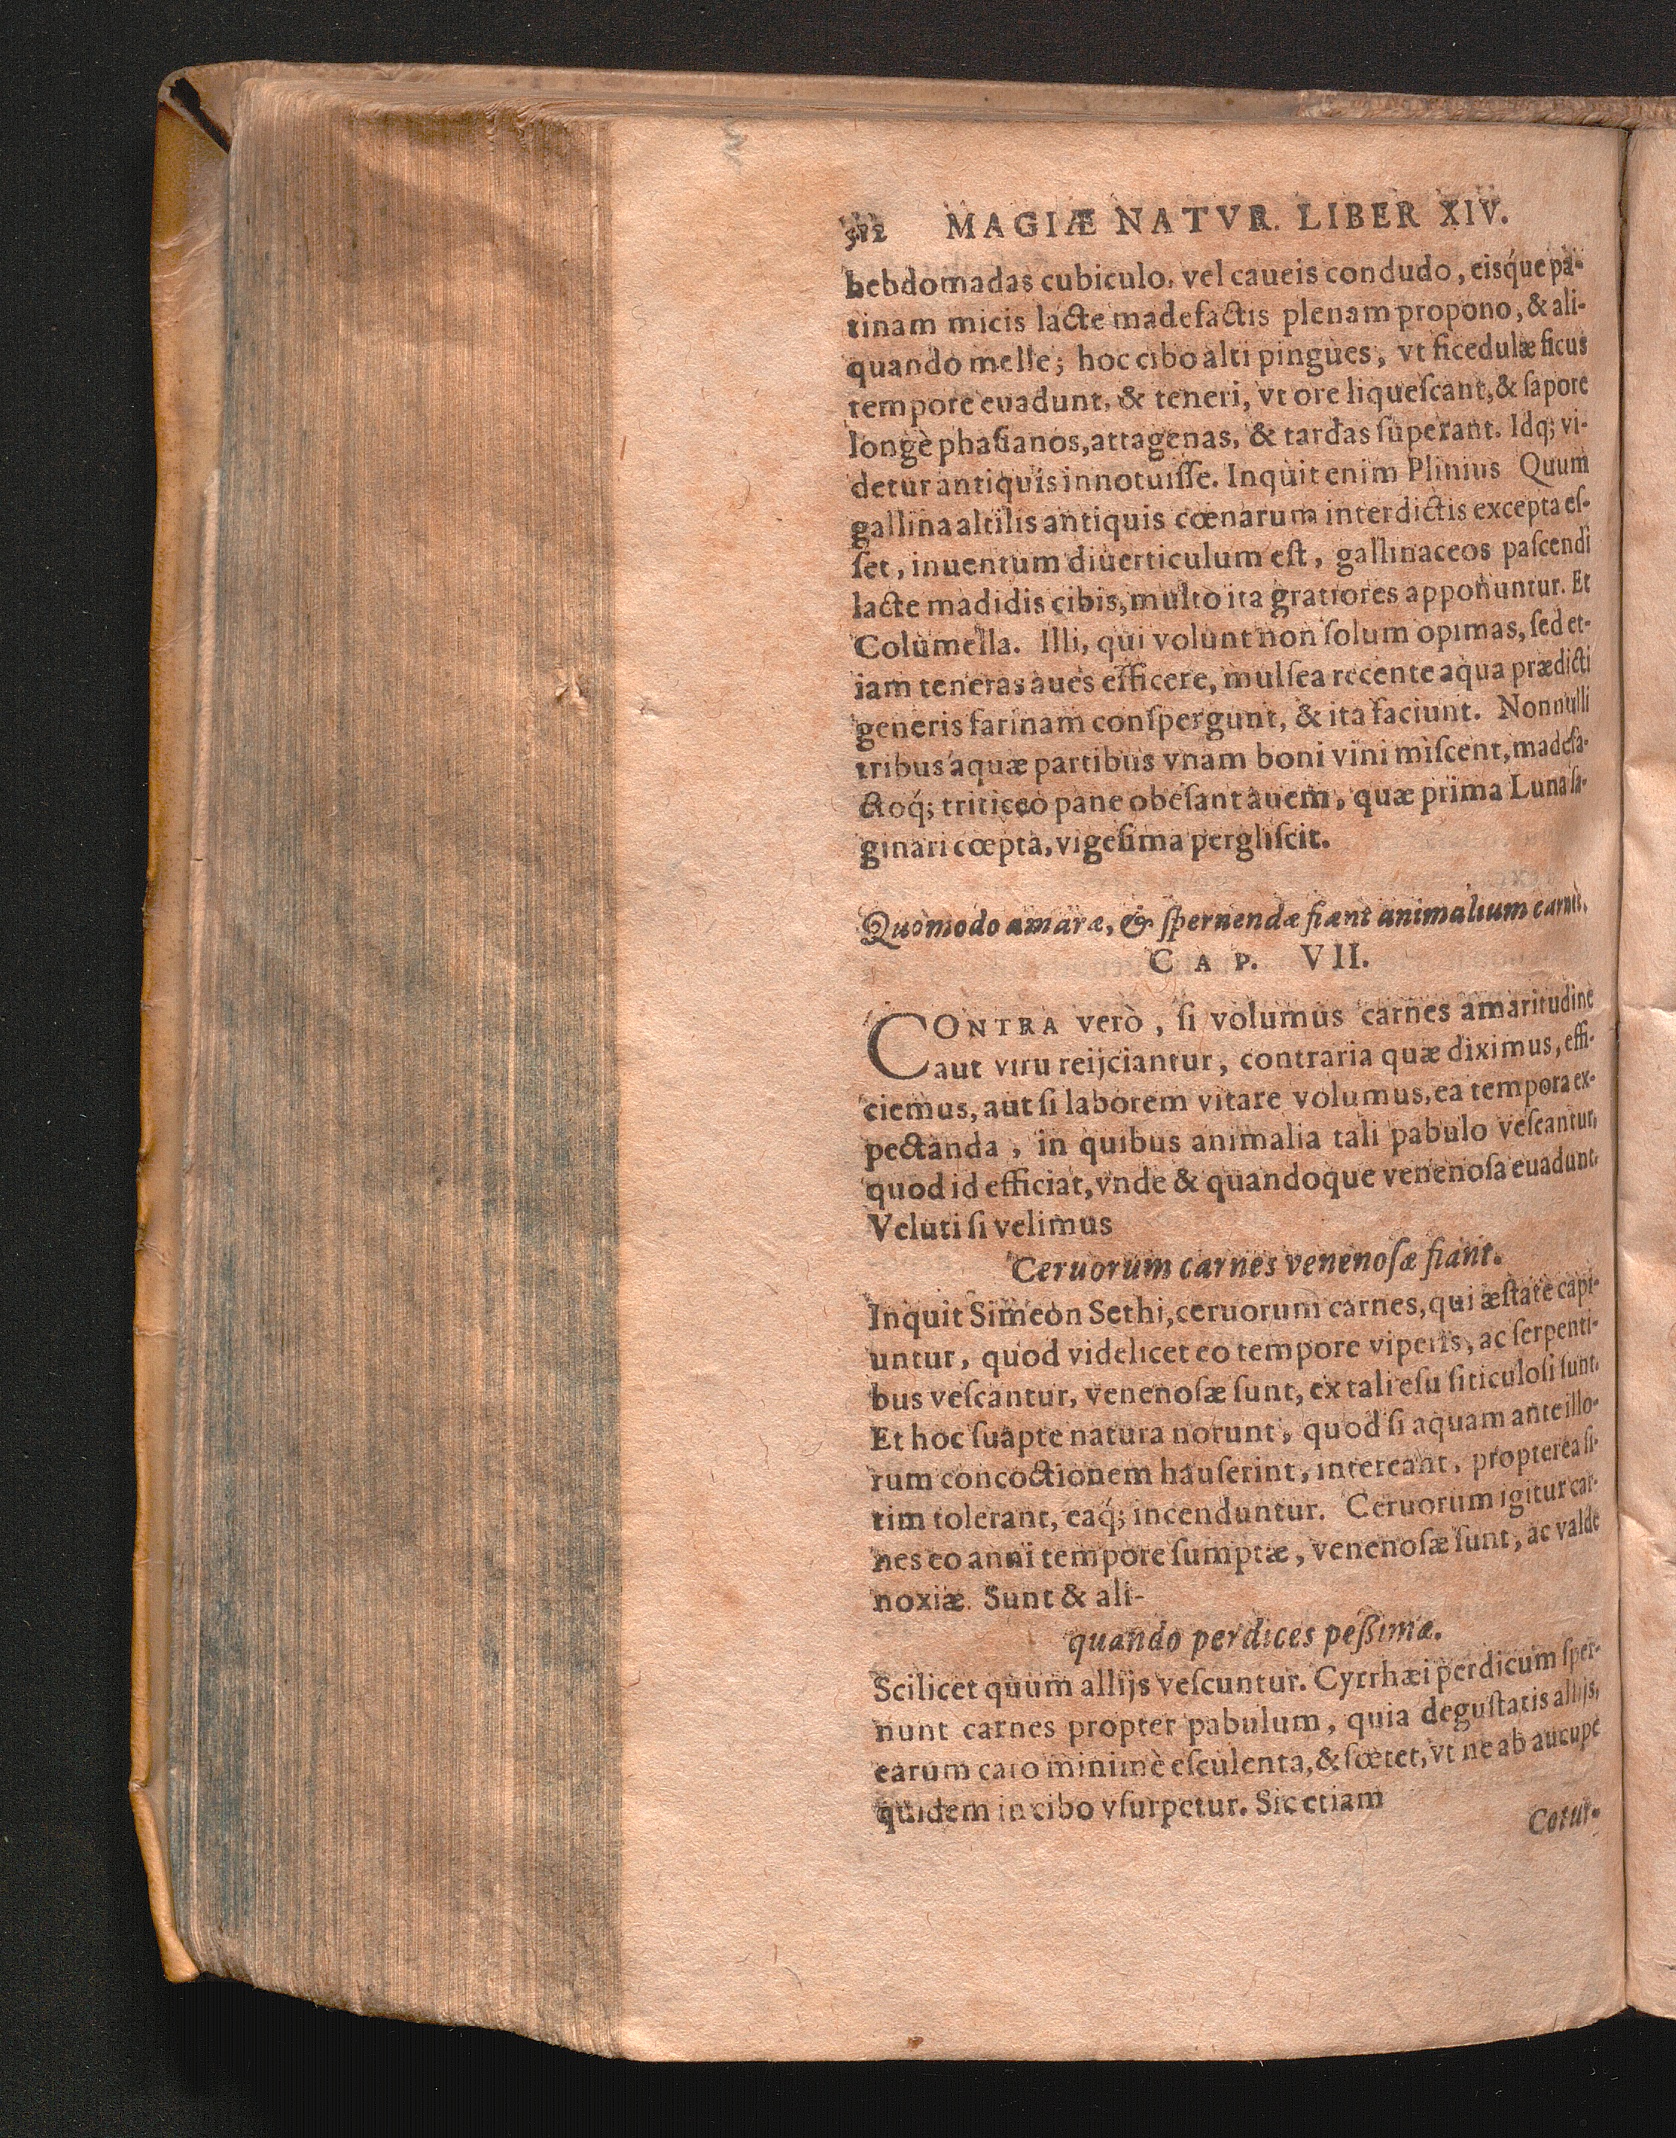 512 MAGIÆ NATVR. LIBER XIV.
hebdomadas cubiculo, vel caueis condudo, eisq́ue pa-
tinam micis lacte madefactis plenam propono, & ali-
quando melle; hoc cibo alti pingues, vt ficedulæ ficus
tempore euadunt, & teneri, vt ore liqueſcant, & ſapore
longè phaſianos, attagenas, & tardas ſuperant. Idq; vi-
detur antiquis innotuiſſe. Inquit enim Plinius Quum
gallina altilis antiquis cœnarum interdictis excepta eſ-
ſet, inuentum diuerticulum eſt, gallinaceos paſcendi
lacte madidis cibis, multo ita gratiores apponuntur. Et
Columella. Illi, qui volunt non ſolum opimas, ſed et-
iam teneras aues efficere, mulſea recente aqua prædicti
generis farinam conſpergunt, & ita faciunt. Nonnulli
tribus aquæ partibus vnam boni vini miſcent, madefa-
ctoq́; triticeo pane obeſant auem, quæ prima Luna ſa-
ginari cœpta, vigeſima pergliſcit.
Quomodo amaræ, & ſpernendæ fiant animalium carnes.
CAP. VII.
CONTRA verò, ſi volumus carnes amaritudine
aut viru reijciantur, contraria quæ diximus, effi-
ciemus, aut ſi laborem vitare volumus, ea tempora ex-
pectanda, in quibus animalia tali pabulo veſcantur,
quod id efficiat, vnde & quandoque venenoſa euadunt.
Veluti ſi velimus
Ceruorum carnes venenoſæ fiant.
Inquit Simeon Sethi, ceruorum carnes, qui æſtate capi-
untur, quod videlicet eo tempore viperis, ac ſerpenti-
bus veſcantur, venenoſæ ſunt, ex tali eſu ſiticuloſi ſunt.
Et hoc ſuapte natura norunt, quod ſi aquam ante illo-
rum concoctionem hauſerint, intereant, propterea ſi-
tim tolerant, eaq́; incenduntur. Ceruorum igitur car-
nes eo anni tempore ſumptæ, venenoſæ ſunt, ac valde
noxiæ. Sunt & ali-
quando perdices peſſimæ.
Scilicet quum allijs veſcuntur. Cyrrhæi perdicum ſper-
nunt carnes propter pabulum, quia deguſtatis allijs,
earum caro minimè eſculenta, & fœtet, vt ne ab aucupe
quidem in cibo vſurpetur. Sic etiam
Cotur-